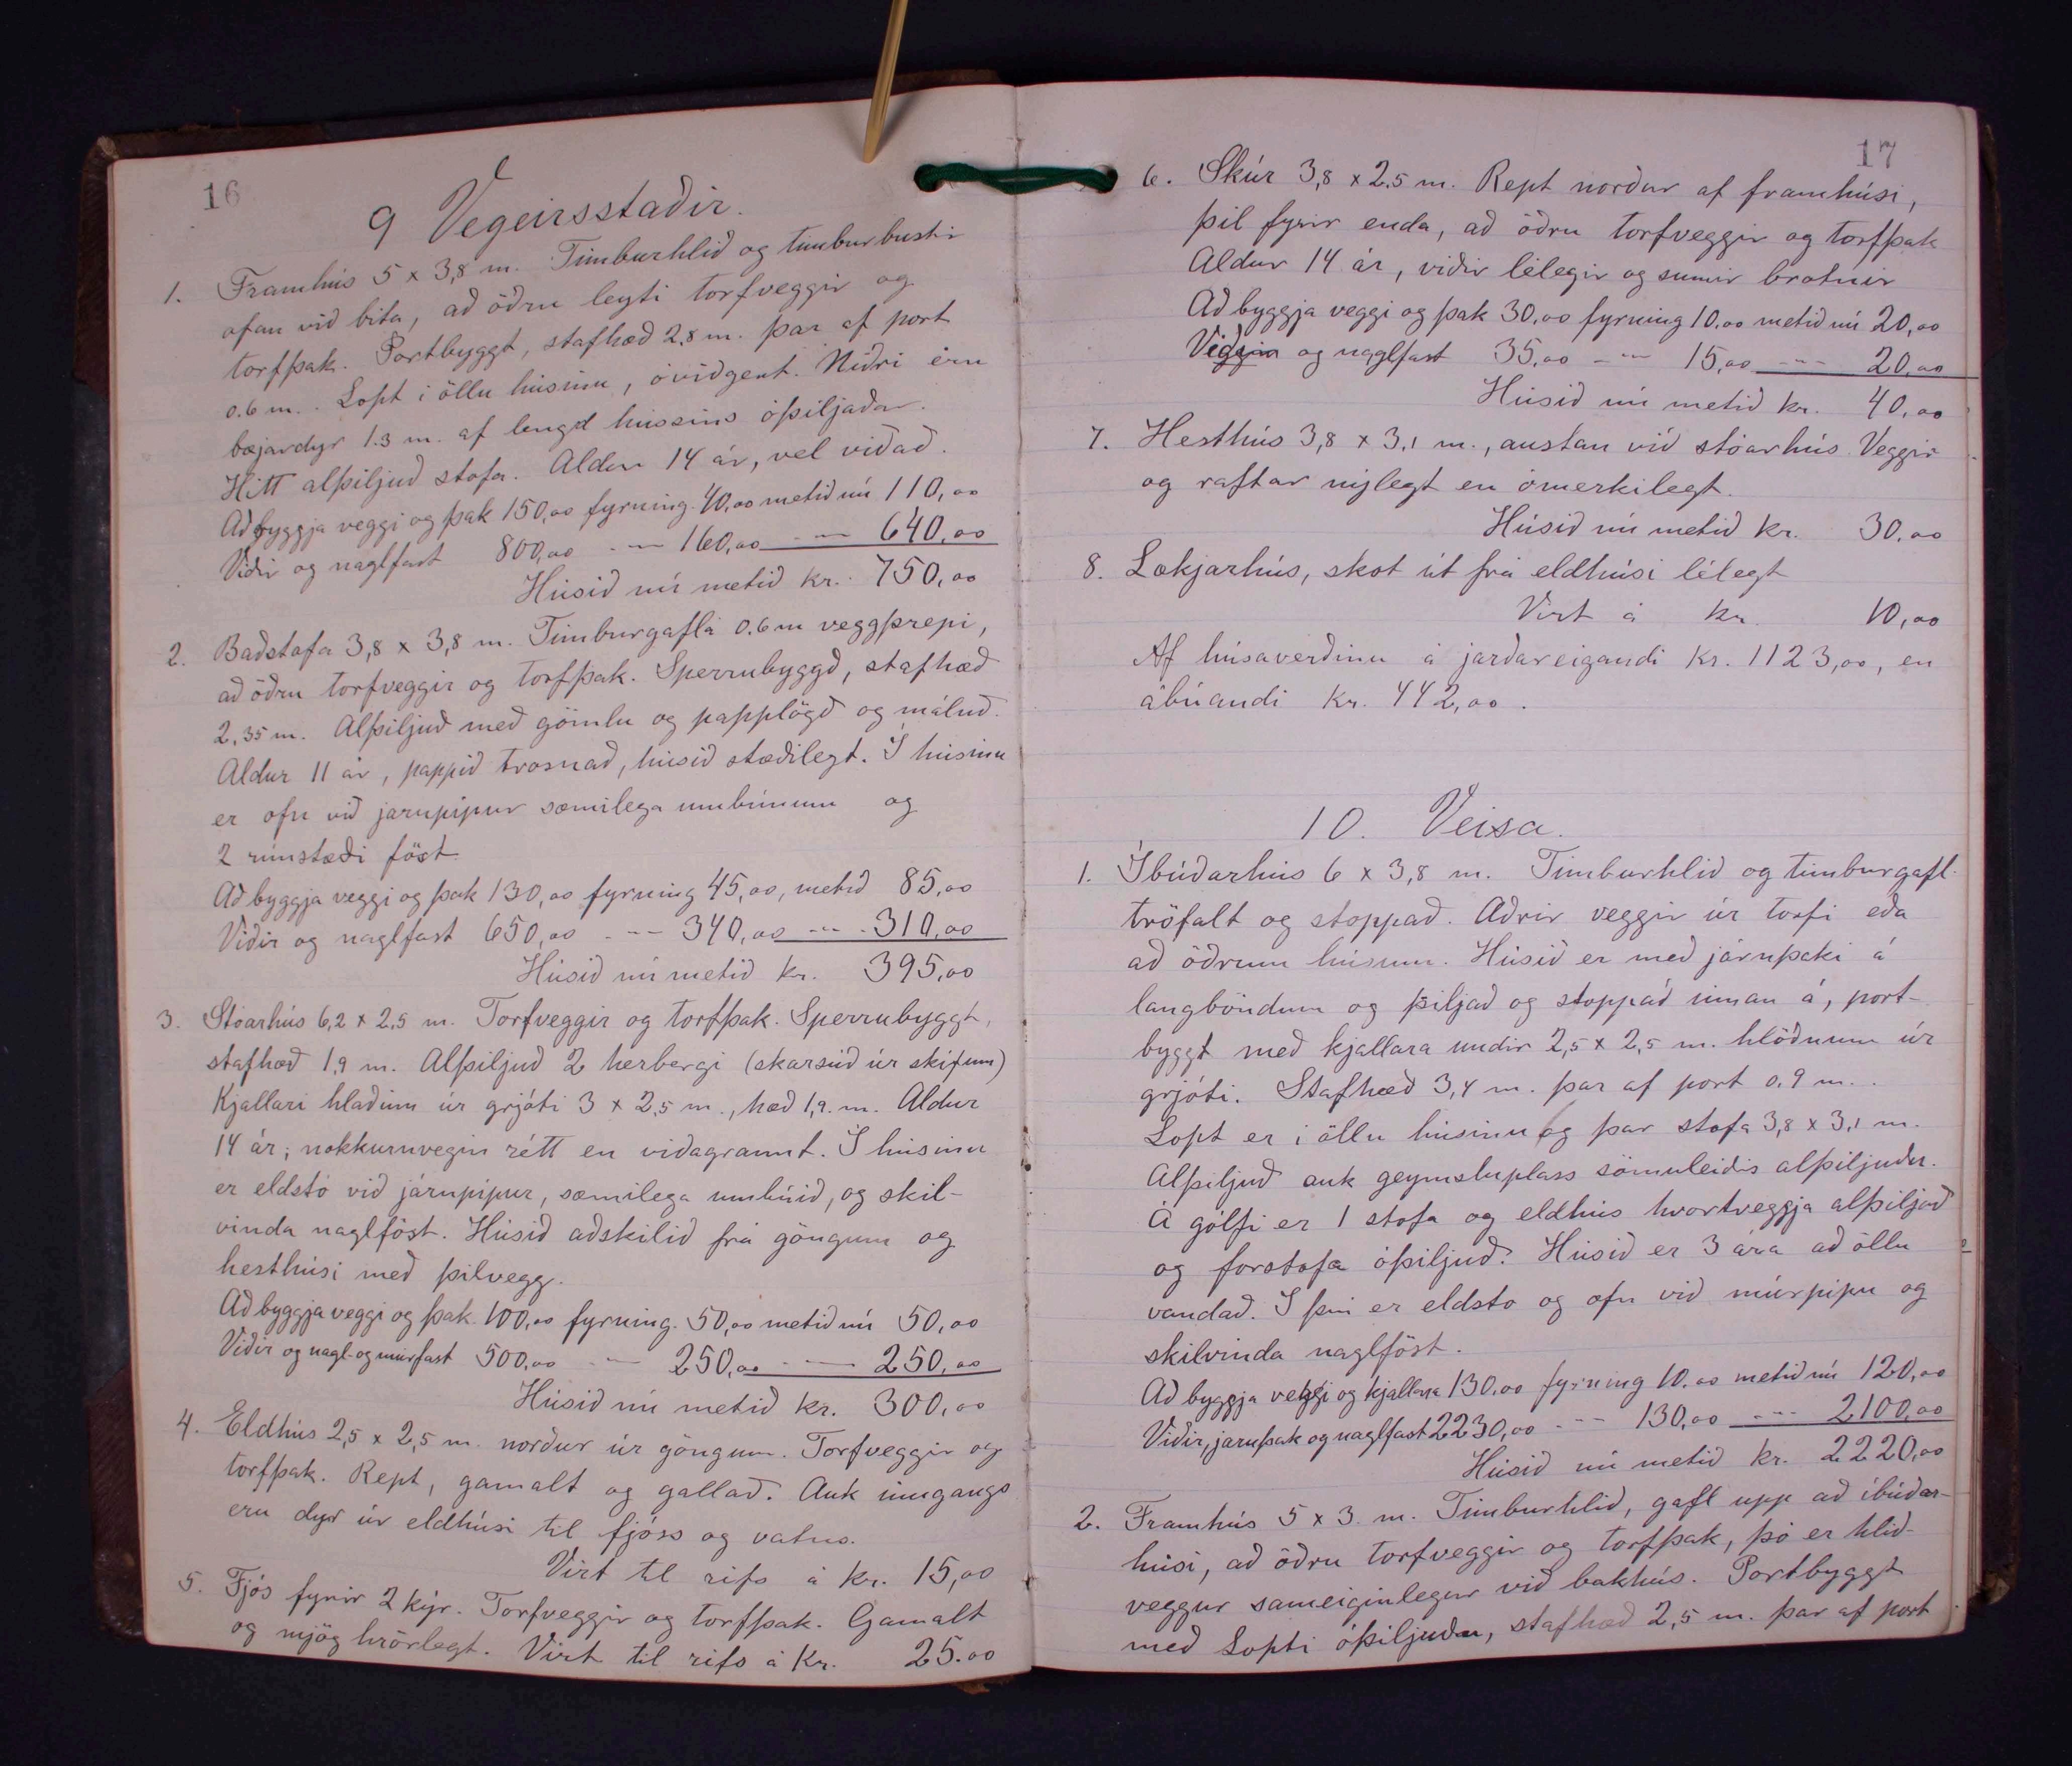 16
9 Vegeirsstaðir.
1. Framhús 5 x 3,8 m. Timburhlið og timburbustir
ofan við bita, að öðru leyti torfveggir og
torfþak. Portbyggt, stafhæð 2,8 m. þar af port
0.6 m.. Lopt í öllu húsinu, óvíðgert. Niðri eru
bæjardyr 1.3 m. af lengd hússins óþiljaðar.
Hitt alþiljuð stofa. Aldur 14 ár, vel viðað.
Að byggja veggi og þak 150,00 fyrning 40,00 metið nú 110,00
Viðir og naglfast 800,00 -"- 160,00 -"- 640,00
Húsið nú metið kr. 750,00
2. Baðstofa 3,8 x 3,8 m. Timburgafl á 0.6 m veggþrepi,
að öðru torfveggir og torfþak. Sperrubyggð, stafhæð
2,35 m. Alþiljuð með gömlu og papplögð og máluð.
Aldur 11 ár, pappið trosnað, húsið stæðilegt. Í húsinu
er ofn við jarnpípur sæmilega umbúnum og
2 rúmstæði föst.
Að byggja veggi og þak 130,00 fyrning 45,00, metið 85,00
Viðir og naglfast 650,00 -"- 340,00 -"- 310,00
Húsið nú metið kr. 395,00
3. Stóarhús 6,2 x 2,5 m. Torfveggir og torfþak. Sperrubyggt,
stafhæð 1,9 m. Alþiljuð 2 herbergi (skarsúð úr skífum)
Kjallari hlaðinn úr grjóti 3 x 2,5 m., hæð 1,9. m. Aldur
14 ár; nokkurnvegin rétt en viðagrannt. Í húsinu
er eldstó við járnpípur, sæmilega umbúið, og skil-
vinda naglföst. Húsið aðskilið frá göngum og
hesthúsi með þilvegg.
Að byggja veggi og þak 100,00 fyrning. 50,00 metið nú 50,00
Viðir og nagl- og múrfast 500,00 -"- 250,00 -"- 250,00
Húsið nú metið kr. 300,00
4. Eldhús 2,5 x 2,5 m. norður úr göngum. Torfveggir og
torfþak. Rept, gamalt og gallað. Auk inngangs
eru dyr úr eldhúsi til fjóss og vatns.
Virt til rifs á kr. 15,00
5. Fjós fyrir 2 kýr. Torfveggir og torfþak. Gamalt
og mjög hrörlegt. Virt til rifs á Kr. 25.00
17
6. Skúr 3,8 x 2,5 m. Rept norður af framhúsi,
þil fyrir enda, að öðru torfveggir og torfþak
Aldur 14 ár, viðir lélegir og sumir brotnir
Að byggja veggi og þak 30,00 fyrning 10,00 metið nú 20,00
og naglfast 35,00 -"- 15,00 -"- 20,00
Húsið nú metið kr. 40,00
7. Hesthús 3,8 x 3,1 m., austan við stóarhús. Veggir
og raftar nýlegt en ómerkilegt.
Húsið nú metið kr. 30,00
8. Lækjarhús, skot út frá eldhúsi lélegt
Virt á kr. 10,00
Af húsaverðinu á jarðareigandi kr. 1123,00, en
ábúandi kr. 442,00.
10. Veisa.
1. Íbúðarhús 6 x 3,8 m. Timburhlið og timburgafl
tröfalt og stoppað. Aðrir veggir úr torfi eða
að öðrum húsum. Húsið er með járnþaki á
langböndum og þiljað og stoppað innan á, port-
byggt með kjallara undir 2,5 x 2,5 m. hlöðnum úr
grjóti. Stafhæð 3,4 m. þar af port 0.9 m..
Lopt er í öllu húsinu og þar stofa 3,8 x 3,1 m.
Alþiljuð auk geymsluplass sömuleiðis alþiljuðu.
Á gólfi er 1 stofa og eldhús hvortveggja alþiljað
og forstofa óþiljuð. Húsið er 3 ára að öllu
vandað. Í því er eldsto og ofn við múrpípu og
skilvinda naglföst.
Að byggja veggi og kjallara 130,00 fyrning 10.00 metið nú 120,00
Viðir, jarnþak og naglfast 2230,00 -"- 130,00 -"- 2100,00
Húsið nú metið kr. 2220,00
2. Framhús 5 x 3 m. Timburhlið, gafl upp að íbúðar-
húsi, að öðru torfveggir og torfþak, þó er hlið-
veggur sameiginlegur við bakhús. Portbyggt
með Lopti óþiljuðu, stafhæð 2,5 m. þar af port